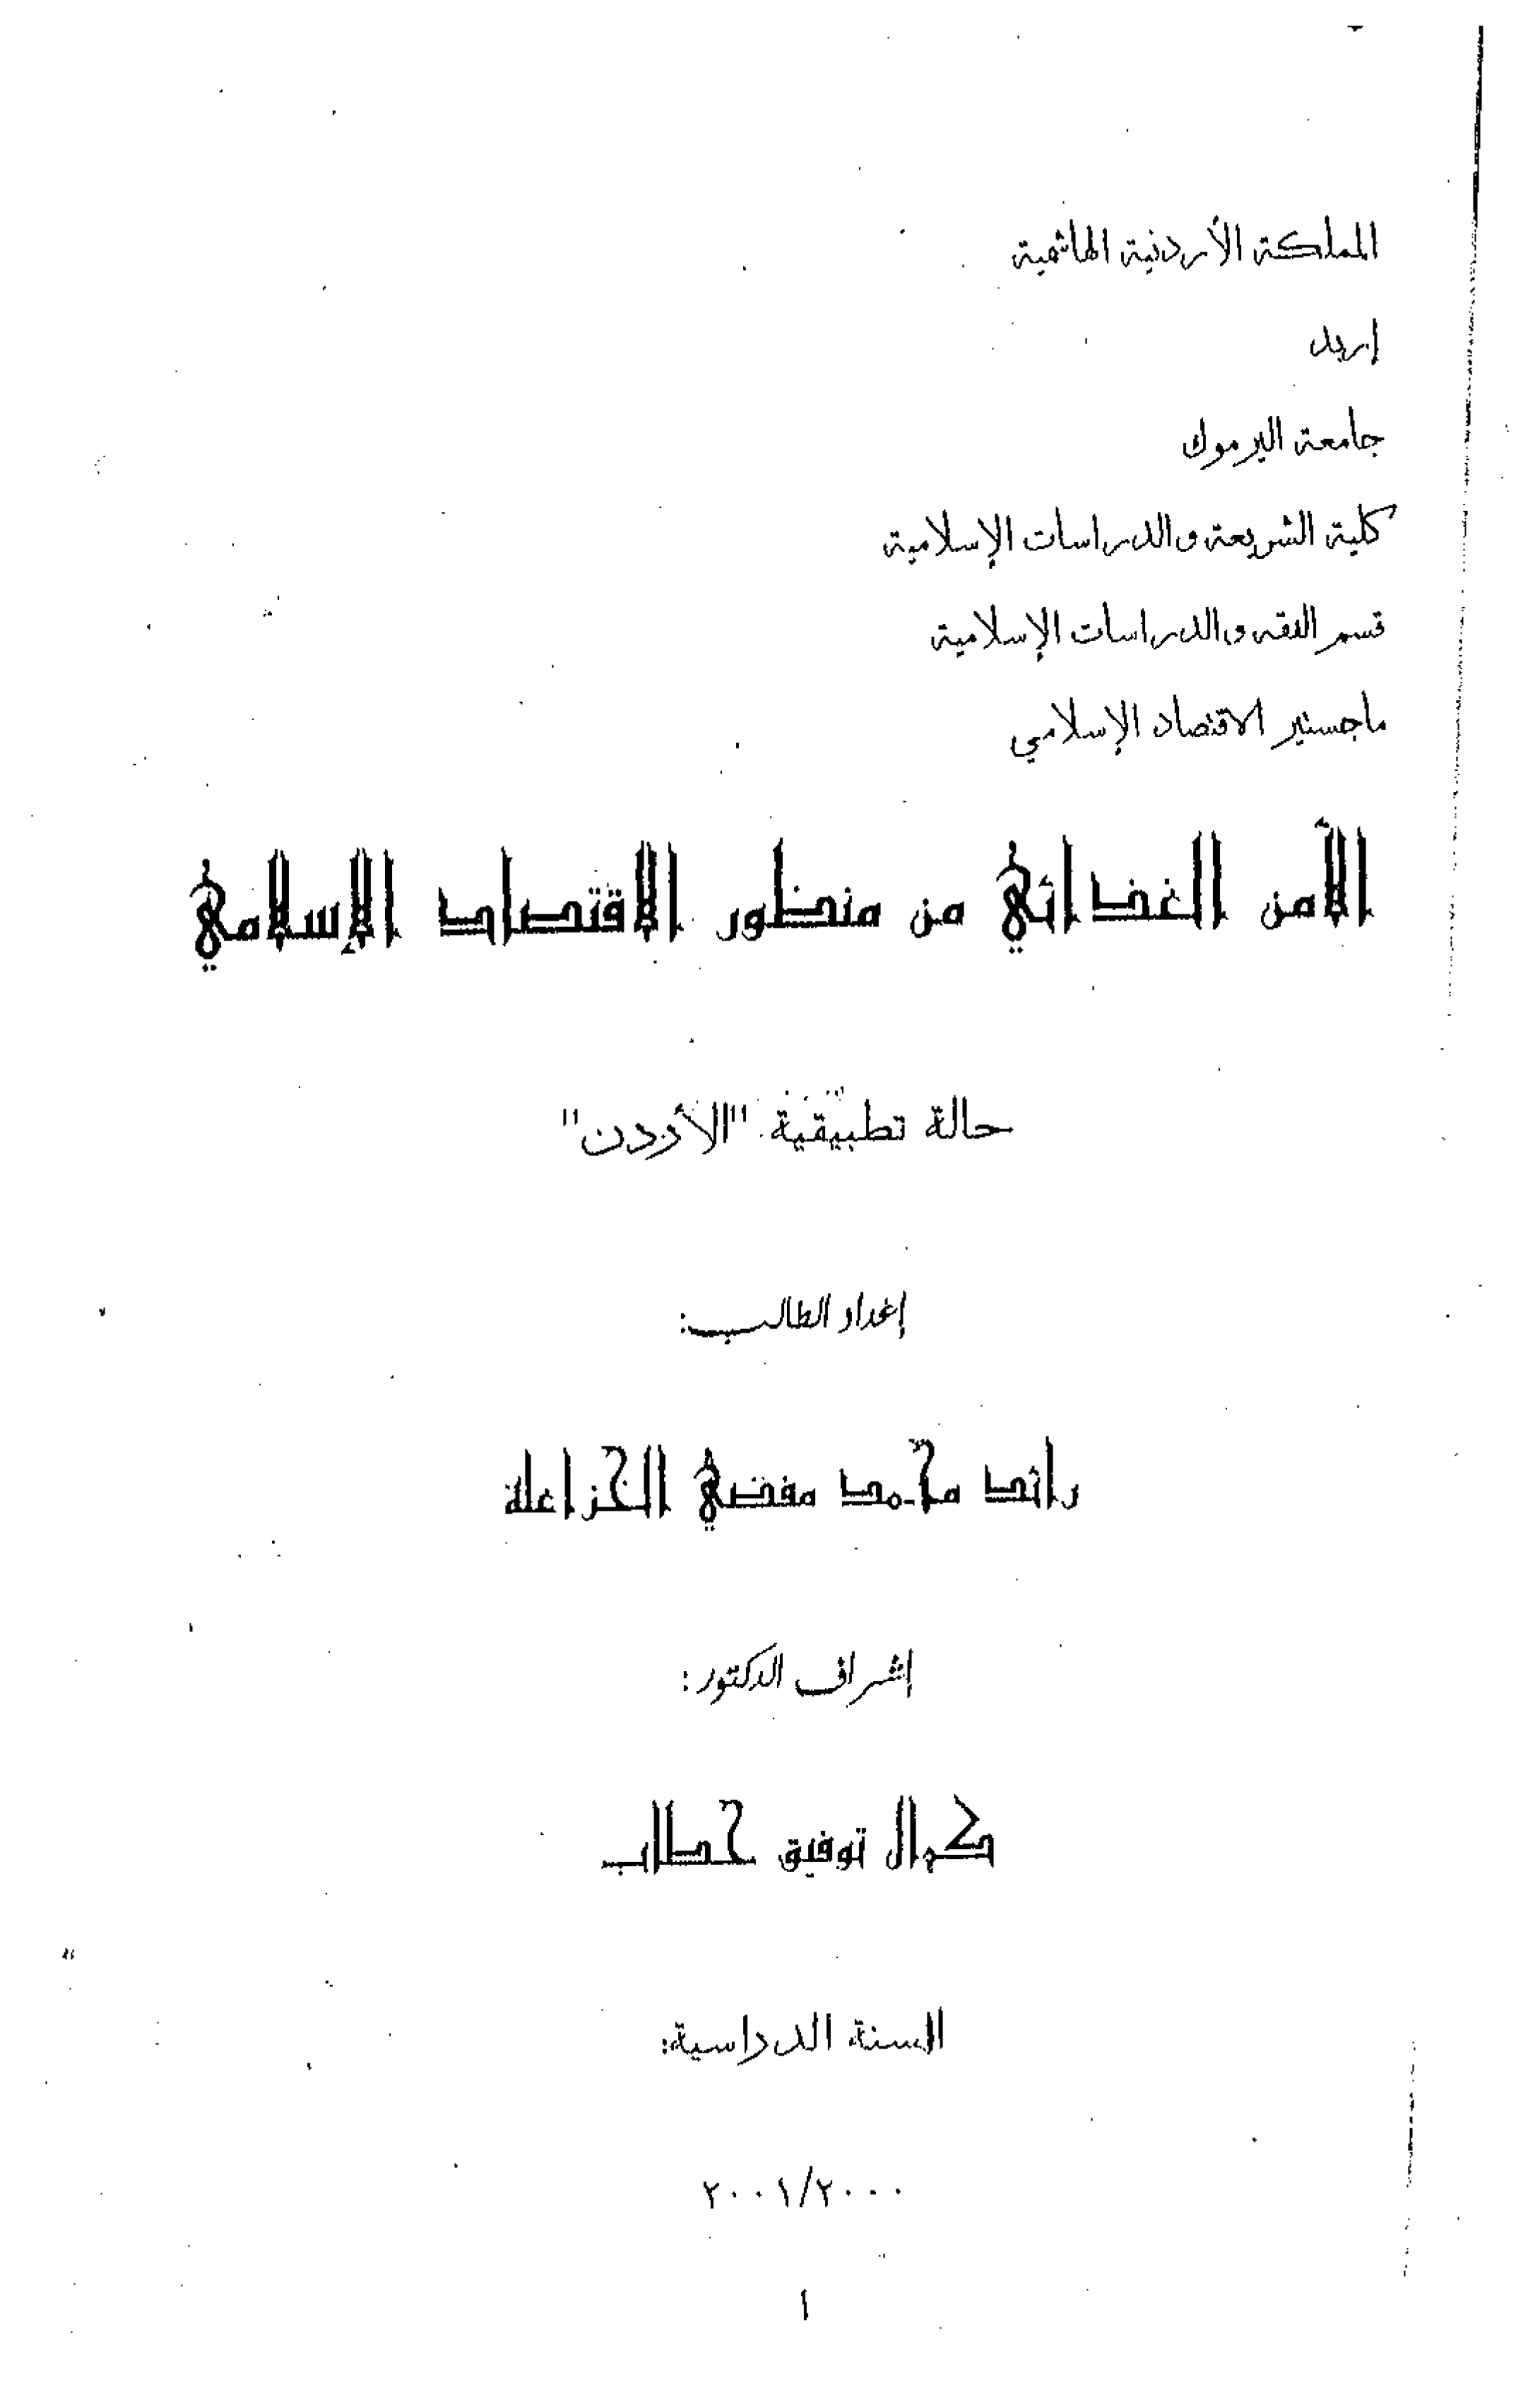 المملكة الأردنية الهاشمية
إربد
جامعة اليرموك
كلية الشريعة والدراسات الإسلامية
قسم الفقه والدراسات الإسلامية
ماجستير الاقتصاد الإسلامي
الأمن الغذائي من منظور الاقتصاد الإسلامي
حالة تطبيقية "الأردن"
إعداد الطالب:
رائد محمد مفضي الخزاعلة
إشراف الدكتور:
كمال توفيق حطاب
السنة الدراسية:
٢٠٠١/٢٠٠٠
١